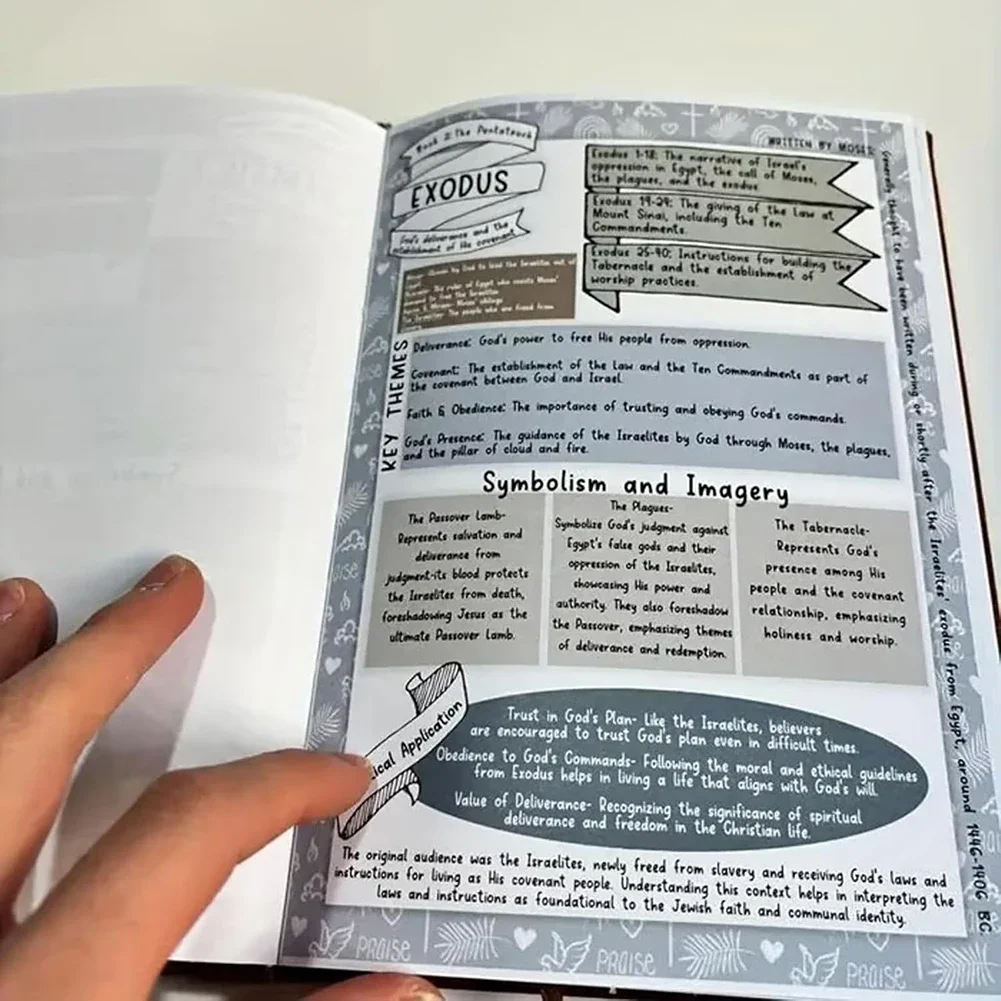 Book 2: The Pentateuch
EXODUS
God's deliverance and the
establishment of His covenant.
WRITTEN BY MOSES:
Generally thought to have been written during or shortly after the Israelites' exodus from Egypt, around 1446-1406 BC
Exodus 1-18: The narrative of Israel's
oppression in Egypt, the call of Moses,
the plagues, and the exodus
Exodus 19-24: The giving of the Law at
Mount Sinai, including the Ten
Commandments.
Exodus 25-40: Instructions for building the
Tabernacle and the establishment of
worship practices.
Moses- Chosen by God to lead the Israelites out of
Egypt
Pharaoh- The ruler of Egypt who resists Moses'
demand to free the Israelites
Aaron & Miriam- Moses' siblings
The Israelites- The people who are freed from
KEY THEMES
Deliverance: God's power to free His people from oppression.
Covenant: The establishment of the Law and the Ten Commandments as part of
the covenant between God and Israel.
Faith & Obedience: The importance of trusting and obeying God's commands.
God's Presence: The guidance of the Israelites by God through Moses, the plagues,
and the pillar of cloud and fire.
Symbolism and Imagery
The Passover Lamb-
Represents salvation and
deliverance from
judgment-its blood protects
the Israelites from death,
foreshadowing Jesus as the
ultimate Passover Lamb.
The Plagues-
Symbolize God's judgment against
Egypt's false gods and their
oppression of the Israelites,
showcasing His power and
authority. They also foreshadow
the Passover, emphasizing themes
of deliverance and redemption.
The Tabernacle-
Represents God's
presence among His
people and the covenant
relationship, emphasizing
holiness and worship.
ical Application
Trust in God's Plan- Like the Israelites, believers
are encouraged to trust God's plan even in difficult times.
Obedience to God's Commands- Following the moral and ethical guidelines
from Exodus helps in living a life that aligns with God's will.
Value of Deliverance- Recognizing the significance of spiritual
deliverance and freedom in the Christian life.
The original audience was the Israelites, newly freed from slavery and receiving God's laws and
instructions for living as His covenant people. Understanding this context helps in interpreting the
laws and instructions as foundational to the Jewish faith and communal identity.
PRAISE
PRAISE
PRAISE